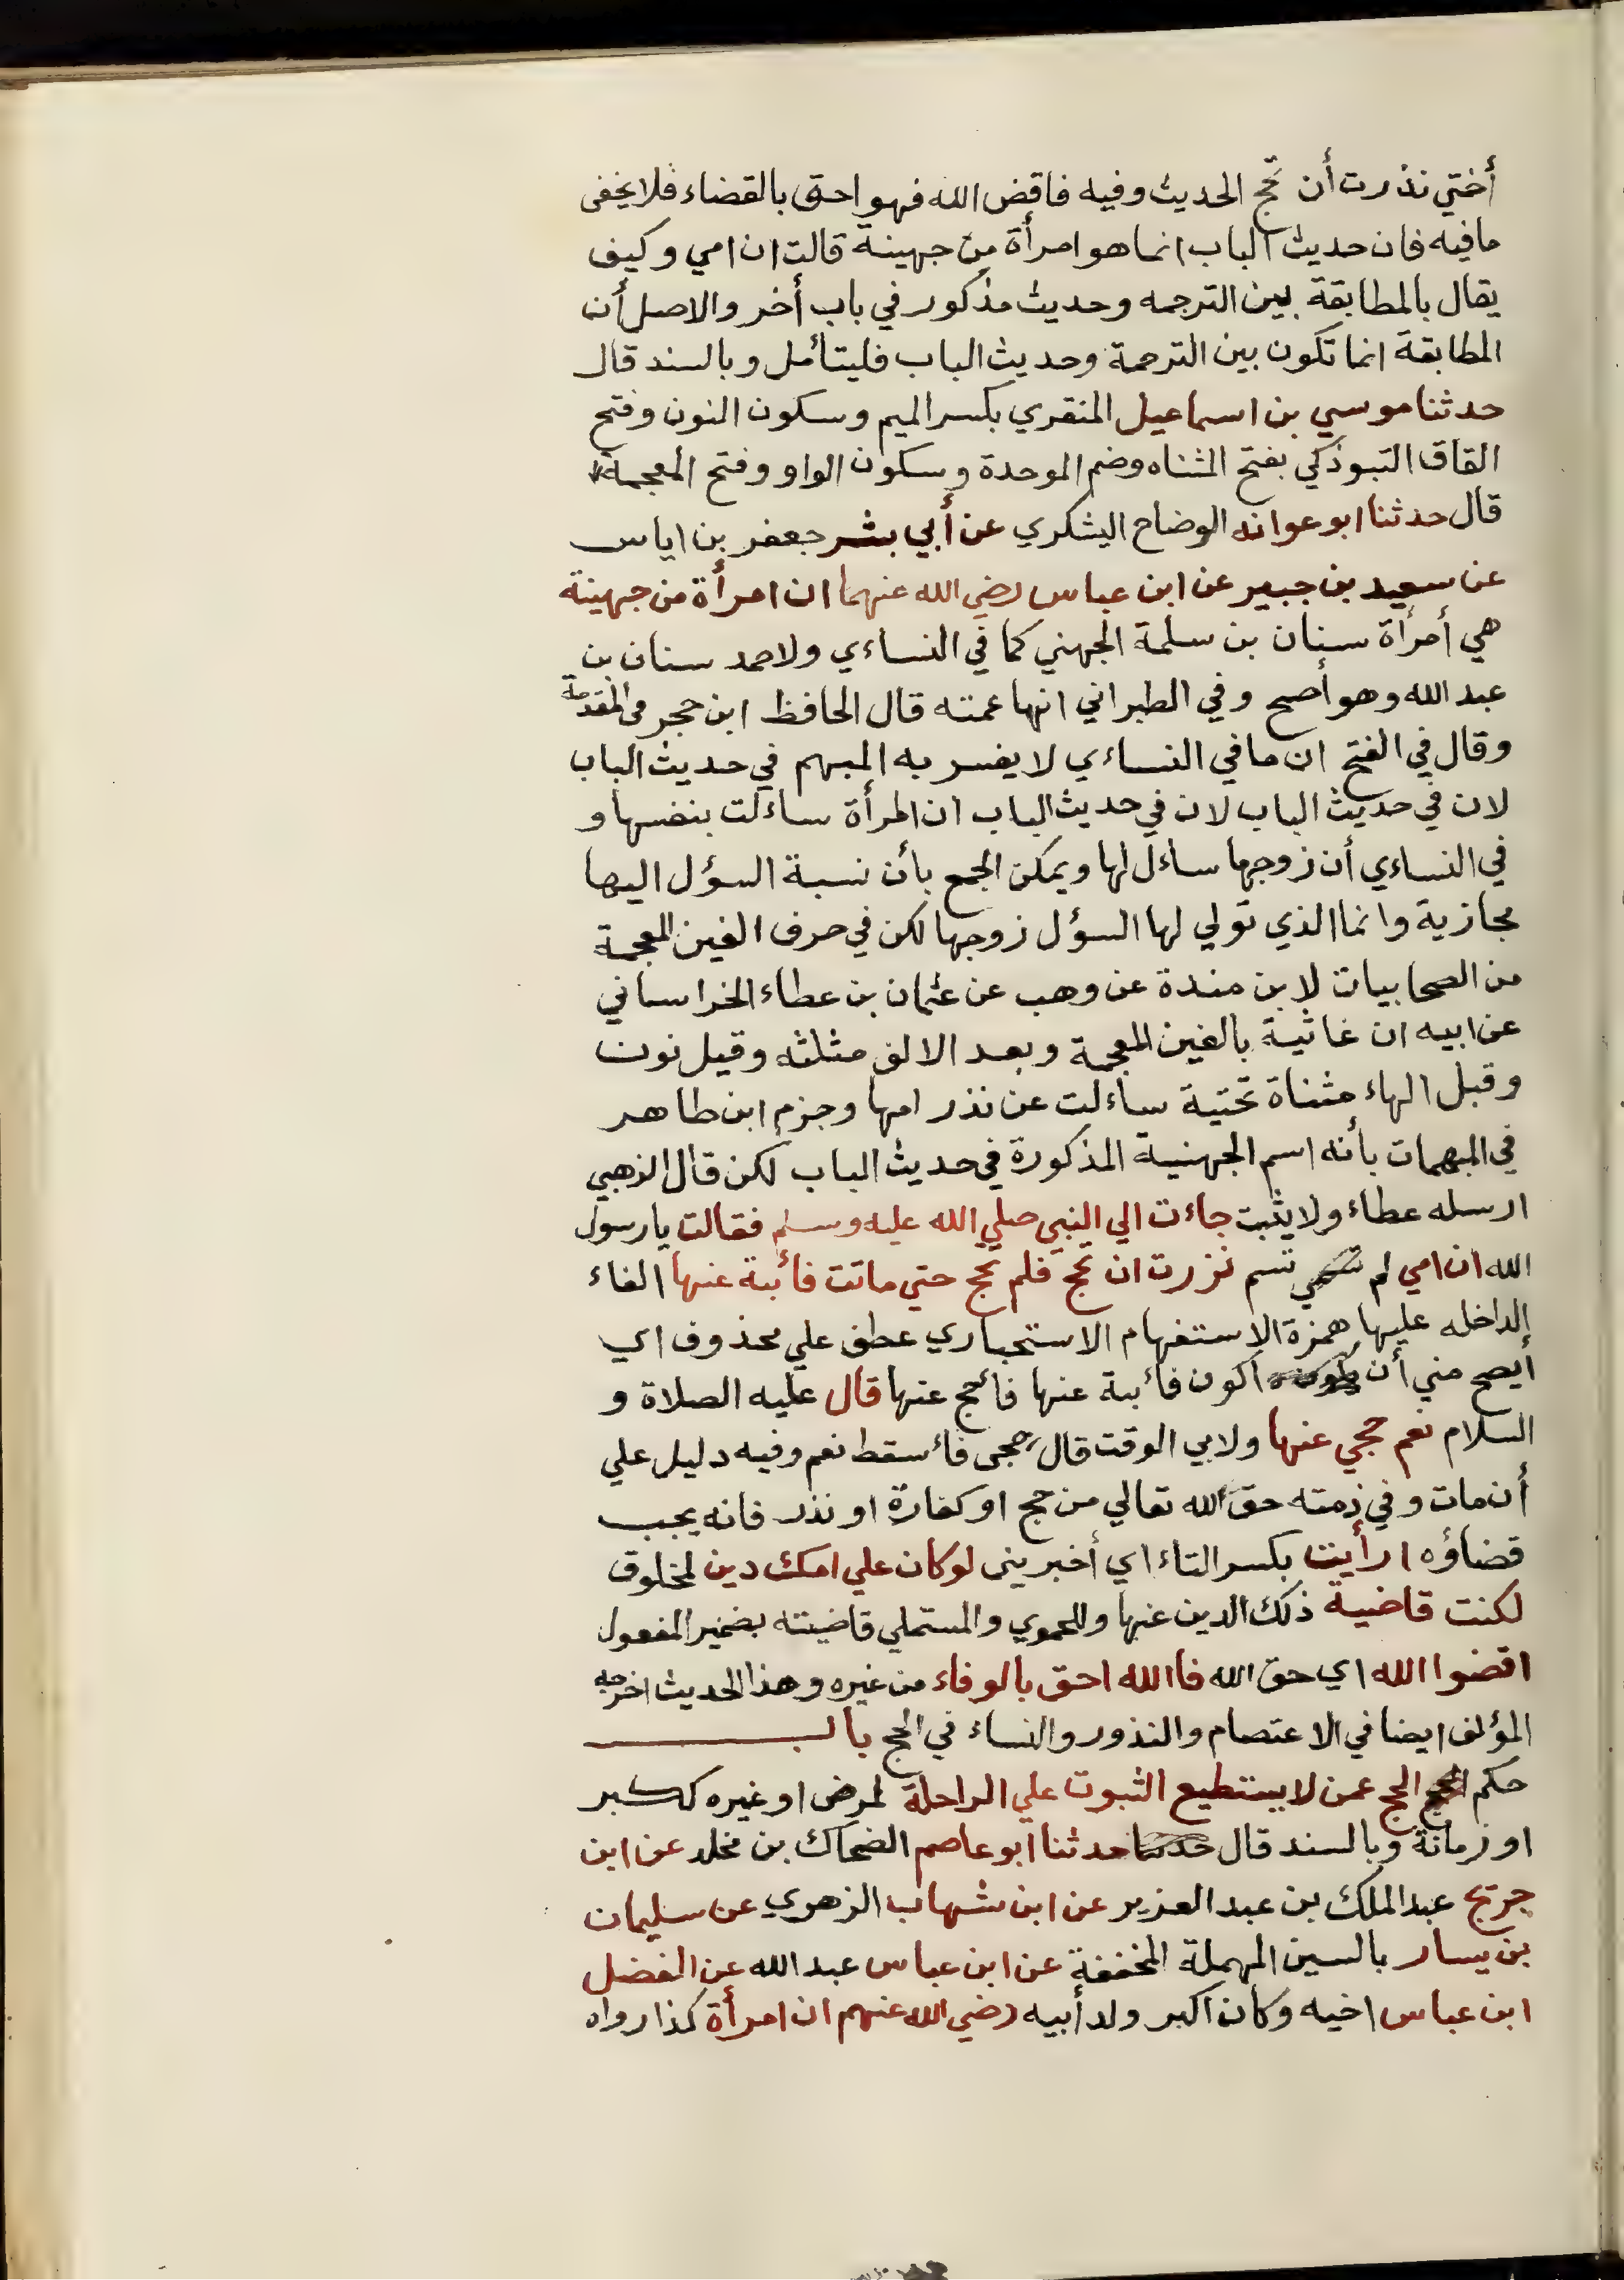 أختي نذرت أن تحج الحديث وفيه فاقض الله فهو احق بالقضاء فلا يخفى
مافيه فان حديث الباب انما هو امرأة من جهينة قالت ان امي وكيف
يقال بالمطابقة بين الترجمه وحديث مذكور في باب أخر والاصل أن
المطابقة انما تكون بين الترجمة وحديث الباب فليتأمل وبالسند قال
حدثنا موسي بن اسماعيل المنقري بكسر الميم وسكون النون وفتح
القاف التبوذكي بفتح المثناه وضم الموحدة وسكون الواو وفتح المعجمة
قال حدثنا ابو عوانه الوضاح اليشكري عن أبي بشر جعفر بن اياس
عن سعيد بن جبير عن ابن عباس رضي الله عنهما ان امرأة من جهينة
هي أمرأة سنان بن سلمة الجهني كما في النساءي ولاحمد سنان بن
عبد الله وهو أصح وفي الطبراني انها عمته قال الحافظ ابن حجر في المقدمة
وقال في الفتح ان ما في النساءي لا يفسر به المبهم في حديث الباب
لان في حديث الباب لان في حديث الباب ان المرأة ساءلت بنفسها و
في النساءي أن زوجها ساءل لها ويمكن الجمع بأن نسبة السؤل اليها
مجازية وانما الذي تولي لها السؤل زوجها لكن في حرف الغين المعجمة
من الصحابيات لابن مندة عن وهب عن عثمان بن عطاء الخراساني
عن ابيه ان غاثية بالغين المعجمة وبعد الالف مثلثه وقيل نون
وقبل الهاء مثناة تحتية ساءلت عن نذر امها وجزم ابن طاهر
في المبهمات بأنه اسم الجهنية المذكورة في حديث الباب لكن قال الذهبي
ارسله عطاء ولا يثبت جاءت الي النبي صلي الله عليه وسلم فقالت يارسول
الله ان امي لم تسم نزرت ان تحج فلم تحج حتي ماتت فأبية عنها الفاء
الداخله عليها همزة الاستفهام الاستخباري عطف علي محذوف اي
أيصح مني أن اكون فأبية عنها فأحج عنها قال عليه الصلاة و
السلام نعم حجي عنها ولابي الوقت قال حجى فأسقط نعم وفيه دليل علي
أن مات وفي ذمته حق لله تعالي من حج او كفارة او نذر فانه يجب
قضاؤه ارأيت بكسر التاء اي أخبريني لو كان علي امك دين لمخلوق
لكنت قاضية ذلك الدين عنها وللحموي والمستملي قاضيته بضمير المفعول
اقضوا الله اي حق الله فاالله احق بالوفاء من غيره وهذا الحديث اخرجه
المؤلف ايضا في الاعتصام والنذور والنساء في الحج بالب
حكم الحج عمن لا يستطيع الثبوت علي الراحلة لمرض او غيره ككبر
او زمانة وبالسند قال حدثنا ابو عاصم الضحاك بن مخلد عن ابن
جريج عبد الملك بن عبد العزير عن ابن شهاب الزهري عن سليمان
بن يسار بالسين المهملة المخففة عن ابن عباس عبد الله عن الفضل
ابن عباس اخيه وكان اكبر ولد أبيه رضي الله عنهم ان امرأة كذا رواه